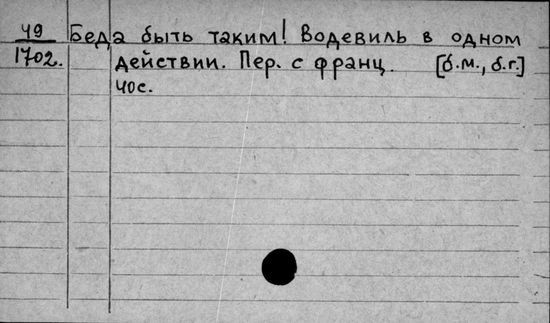 49 Беда быть таким! Водевиль в одном
1702. действии. Пер. с франц. [б.м., б.г.]
40с.